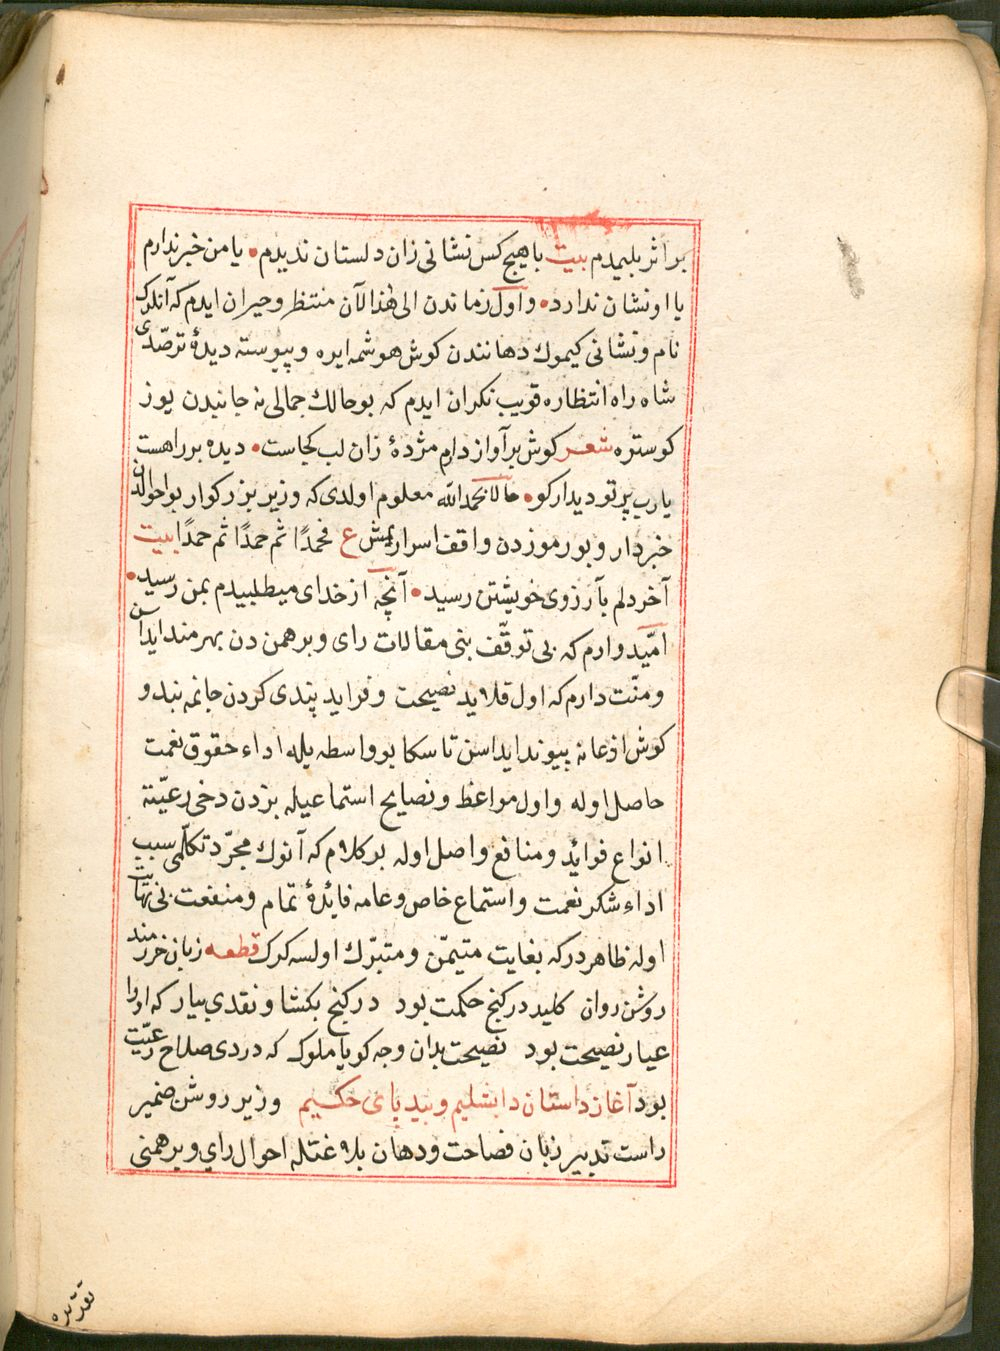 بر اثر بلیمدم بیت با هیچ کس نشانی زان دلستان ندیدم • یا من خبر ندارم
یا او نشان ندارد • و اول زماندن الی هذا الآن منتظر و حیران ایدم که آنلرك
نام و نشانی کیموك دهانندن کوش هوشمه ایره و پیوسته دیدۀ ترصّدی
شاه راه انتظاره قویب نکران ایدم که بو حالك جمالی نه جانبدن یوز
کوستره شعر کوش بر آواز دارم مژدۀ زان لب کجاست • دیده بر راهست
یا رب پرتو دیدار کو • حالا بحمد الله معلوم اولدی که وزیر بزرکوار بو احوالدن
خبردار و بو رموزدن واقف اسرار ایمش ع فحمدًا ثم حمدًا ثم حمدًا بیت
آخر دلم بآرزوی خویشتن رسید • آنچه از خدای میطلبیدم بمن رسید •
امّیدوارم که بی توقّف بنی مقالات رای و برهمن دن بهرمند ایداسن
و منّت دارم که اول قلاید نصیحت و فراید پندی کردن جانمه بند و
کوش اذعانه پیوند ایداسن تا سکا بو واسطه یله اداء حقوق نعمت
حاصل اوله و اول مواعظ و نصایح استماعیله بزدن دخی رعیّته
انواع فوائد و منافع واصل اوله بو کلام که آنوك مجرّد تکلّمی سبب
اداء شکر نعمت و استماع خاص و عامه فائدۀ تمام و منفعت بی نهایت
اوله ظاهردر که بغایت متیمّن و متبرّك اولسه کرك قطعه زبان خردمند
روشن روان کلید در کنج حکمت بود در کنج بکشا و نقدی بیار که او را
عیار نصیحت بود نصیحت بدان وجه کو با ملوک که در دی صلاح رعیّت
بود آغاز داستان دابشلیم و بیدپای حکیم وزیر روشن ضمیر
راست تدبیر زبان فصاحت و دهان بلاغتله احوال رای و برهمنی